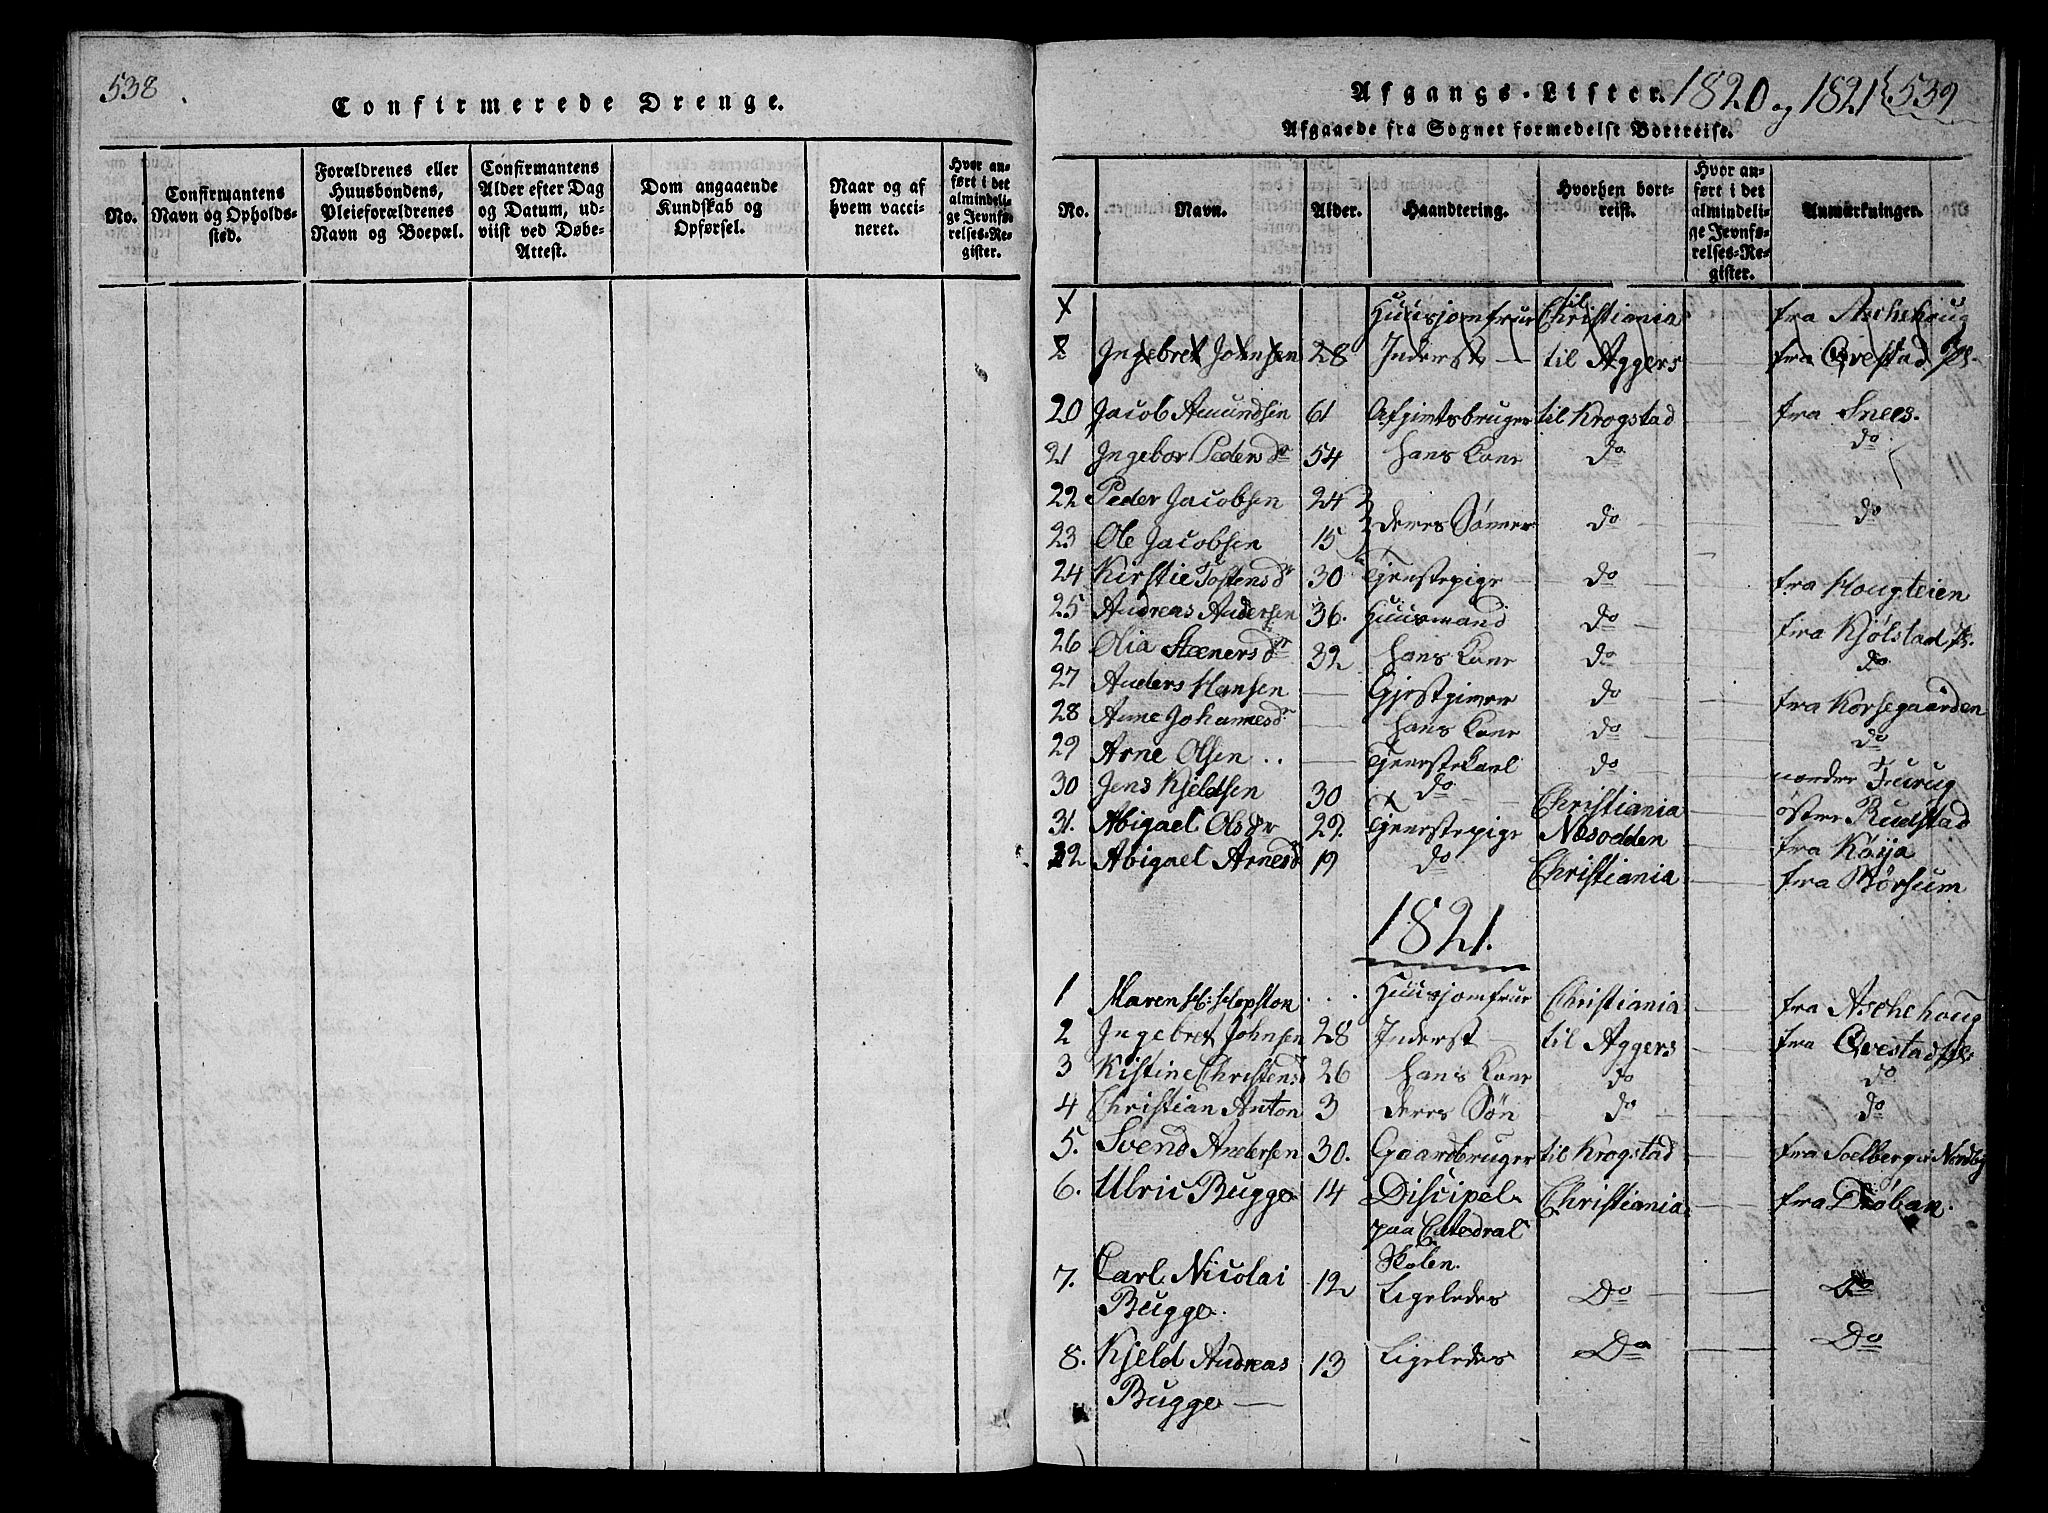 538
Confirmerede Drenge.
No.
Confirmantens Navn og Opholdssted.
Forældrenes eller Huusbondens, Pleieforældrenes Navn og Boepæl.
Confirmantens Alder efter Dag og Datum, udviist ved Døbe-Attest.
Dom angaaende Kundskab og Opførsel.
Naar og af hvem vaccineret.
Hvor anført i det almindelige Jevnførelses-Register.
Afgangs-Lister. 1820 og 1821 539
Afgaaede fra Sognet formedelst Bortreise.
No.
Navn.
Alder.
Haandtering.
Hvorhen bortreist.
Hvor anført i det almindelige Jevnførelses-Register.
Anmærkninger.
Huusjomfrue til Christiania fra Aschehoug
2 Ingebret Johnsen 28 Inderst til Aggers fra Qvestad
20 Jacob Amundsen 61 Afgivtsbruger til Krogstad fra Snees.
21 Ingebor Peders dr 54 hans Kone do do
22 Peder Jacobsen 24 deres Sønner do do
23 Ole Jacobsen 15
24 Kirstie Tostensdr 30 Tjenstepige do fra Hougteien
25 Andreas Andersen 36. Huusmand do fra Kjølstad
26 Olia Steenersdr 32 hans Kone do do
27 Anders Hansen — Gjestgiver do fra Korsegaarden
28 Anne Johannesdr — hans Kone do do
29 Arne Olsen .. — Tjenestekarl do nordre Furug
30 Jens Kjeldsen 30 do Christiania østre Rudstad
31. Abigael Olsdr 22. Tjenestepige Næsodden fra Køija
32 Abigael Arnesd 19 do Christiania fra Børsum
1821.
1 Maren H: Hopston ... Huusjomfrue Christiania fra Aschehoug
2 Ingebret Johnsen 28 Inderst til Aggers fra Qvestad
3 Kistine Christensd 26 hans Kone do do
4 Christian Anton 3 deres Søn do do
5. Svend Andersen 30. Gaardbruger til Krogstad fra Soelberg Nordby
6. Ulric Bugge 14 Discipel Christiania fra Drøbak.
paa Catedral
Skolen.
7. Carl Nicolai 12 Ligeledes Do Do
Bugge.
8. Kjeld Andreas 13 Ligeledes Do Do
Bugge —